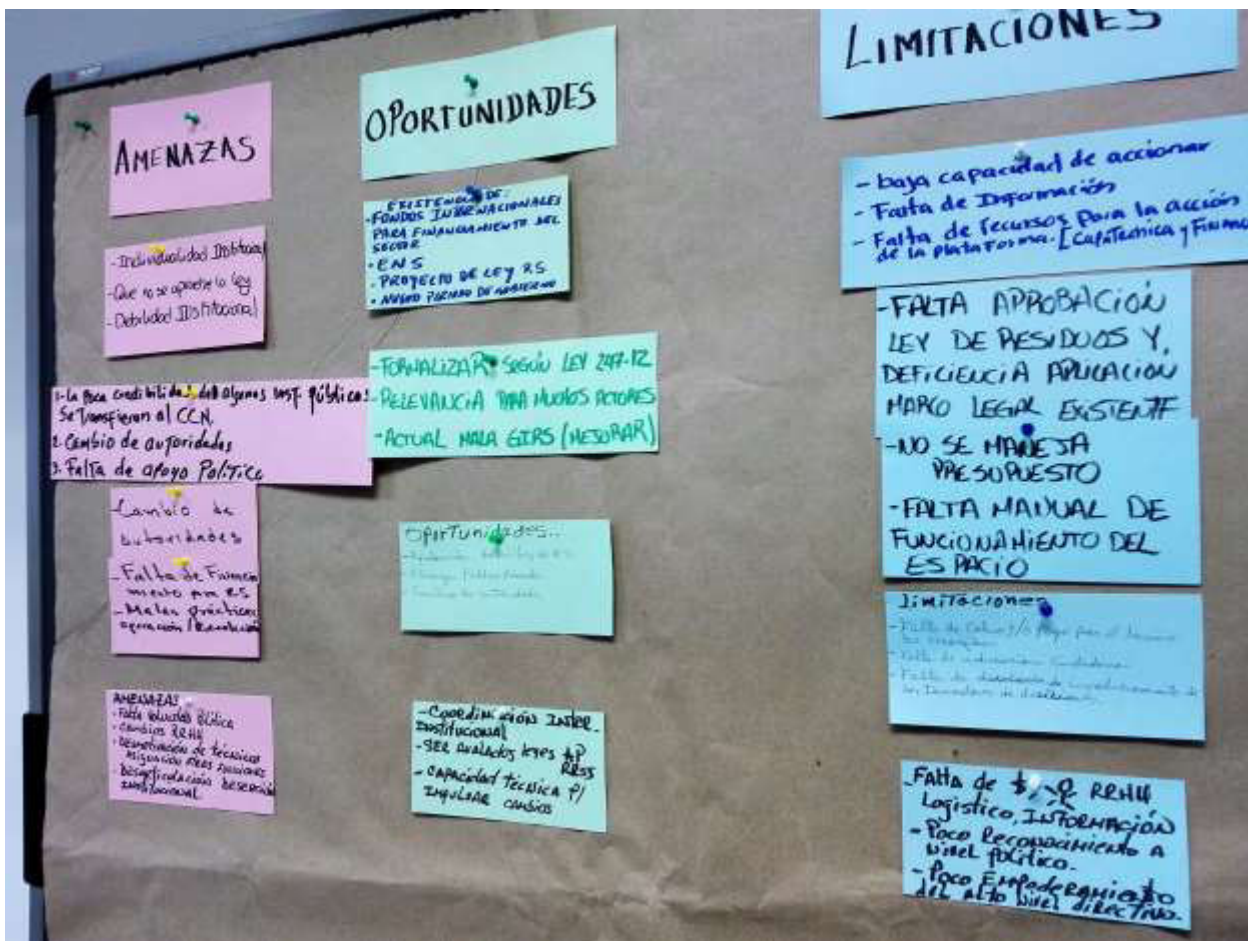 AMENAZAS
- Individualidad Institucional
- Que no se apruebe la Ley
- Debilidad Institucional
1- La Poca credibilidad de Algunas Inst. públicas
Se Transfieran al CCN.
2. Cambio de autoridades
3. Falta de apoyo Político
- Cambio de
autoridades
- Falta de Financia
miento para RS
- Malas prácticas
AMENAZAS
- Falta voluntad Política
- Cambios RRHH
- Desmotivación de técnicos
Asignación otras funciones
- Desarticulación Deserción
Institucional
OPORTUNIDADES
EXISTENCIA DE:
- FONDOS INTERNACIONALES
PARA FINANCIAMIENTO DEL
SECTOR
- ENS
- PROYECTO DE LEY RS
- NUEVO PERIODO DE GOBIERNO
- FORMALIZAR SEGÚN LEY 247-12
- RELEVANCIA PARA MUCHOS ACTORES
- ACTUAL MALA GIRS (MEJORAR)
Oportunidades..
- COORDINACIÓN INTER-
INSTITUCIONAL
- SER AVALADOS leyes AP
RRSS
- CAPACIDAD TÉCNICA P/
IMPULSAR CAMBIOS
LIMITACIONES
- baja capacidad de accionar
- Falta de Información
- Falta de recursos para la acción
de la plataforma. [Cap. Técnica y Financ
- FALTA APROBACIÓN
LEY DE RESIDUOS Y,
DEFICIENCIA APLICACIÓN
MARCO LEGAL EXISTENTE
- NO SE MANEJA
PRESUPUESTO
- FALTA MANUAL DE
FUNCIONAMIENTO DEL
ESPACIO
limitaciones
- Falta de
- Falta de educación ciudadana
- Falta de
- Falta de $, RRHH
Logístico, INFORMACIÓN
- Poco Reconocimiento a
Nivel político.
- Poco Empoderamiento
del alto nivel directivo.